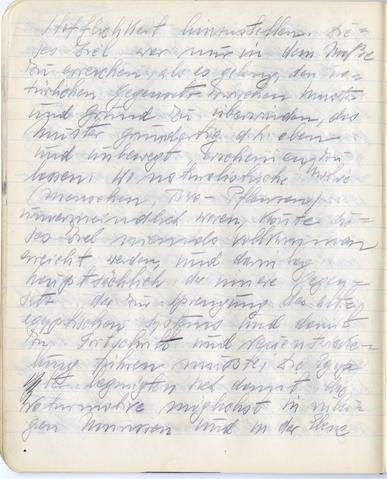 Stofflichkeit hinzustellen. Die-
ses Ziel war nur in dem Maße
zu erreichen, als es gelang, den na-
türlichen Gegensatz zwischen Muster
und Grund zu überwinden, das
Muster grundartig, d.h. eben
und unbewegt erscheinen zu
lassen. Wo naturalistische Motive
(Menschen, Tiere, Pflanzen)
unvermeidlich waren, konnte die-
ses Ziel niemals vollkommen
erreicht werden, und darin lag
hauptsächlich der innere Gegen-
satz, der zur Sprengung des alt-
egyptischen Systems und damit
zu Fortschritt und
führen mußte. Die Egyp-
ter begnügten sich damit, die
Naturmotive möglichst in ruhi-
gen Umrissen und in der Ebene